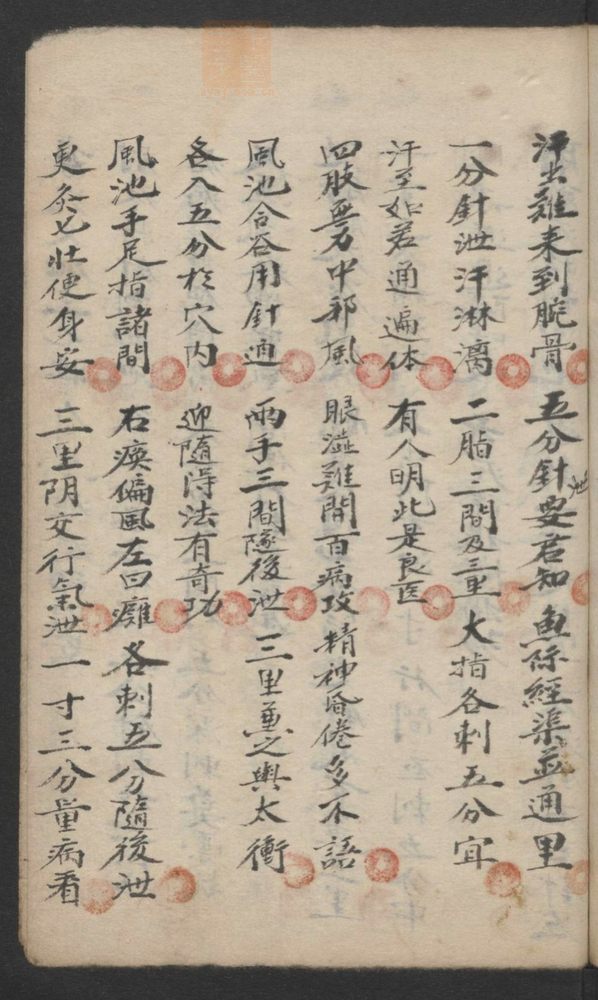 汗出难来到腕骨 五分針泄要君知 魚际經渠並通里
一分針泄汗淋漓 二脂三間及三里 大指各刺五分宜
汗至如若通遍体 有人明此是良医
四肢無力中邪風 眼澁難開百病攻 精神昏倦多不語
風池合谷用針通 两手三間隨後泄 三里兼之與太衝
各入五分於穴内 迎隨得法有奇功
風池手足指諸間 右痪偏風左曰癱 各刺五分隨後泄
更灸七壯便身安 三里阴交行氣泄 一寸三分量病看